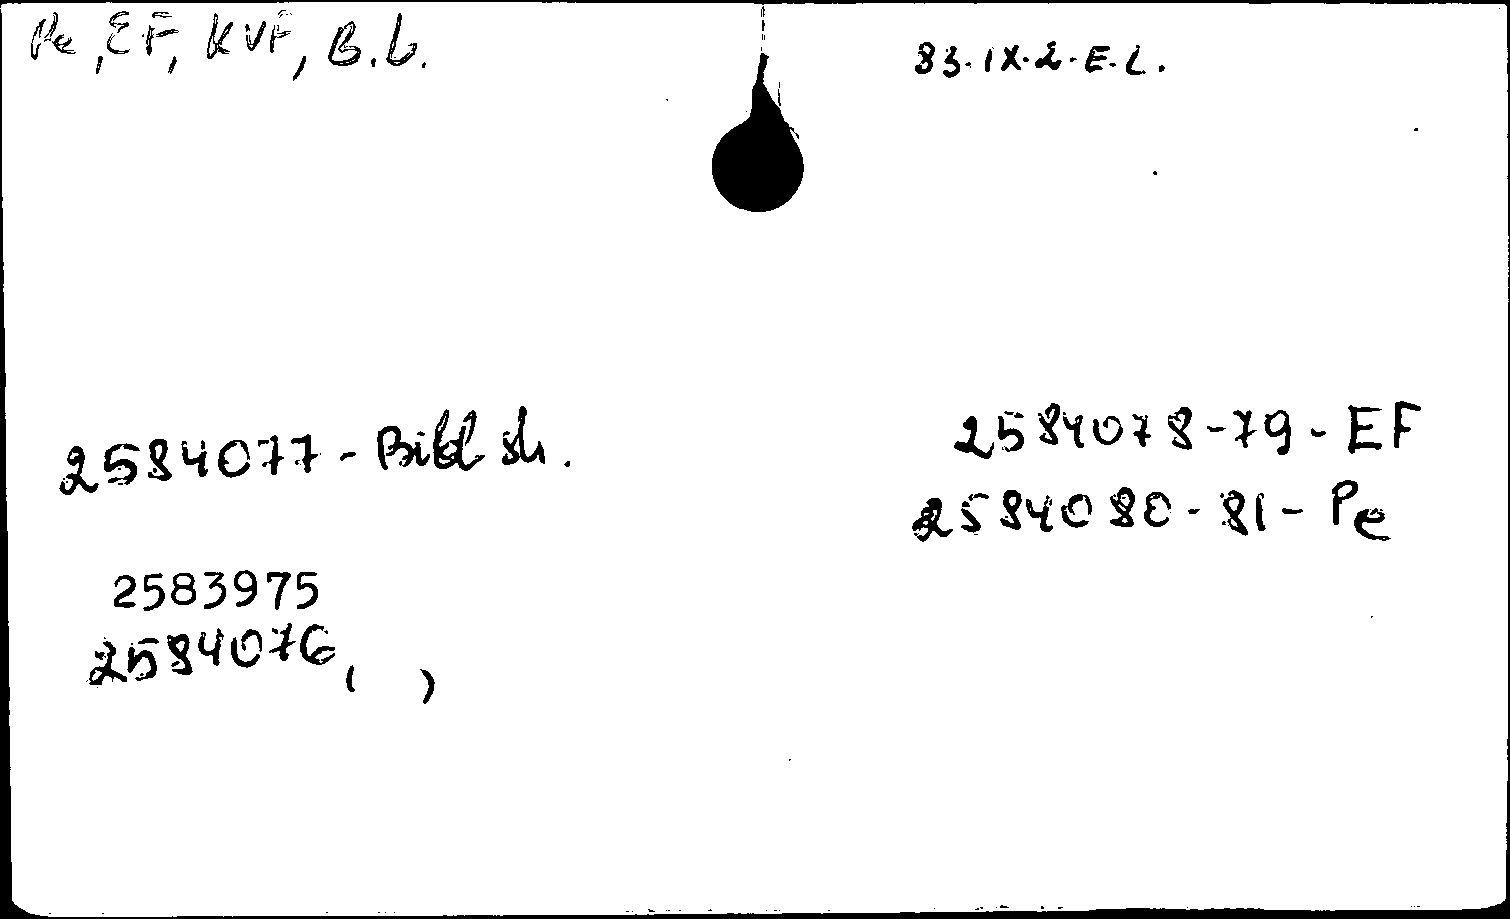 Pe, EF, KVF, B.b.
83.IX.2.E.L.
2584077-Bibl sh.
2584078-79-EF
2584080-81-Pe
2583975
2584076, ( )